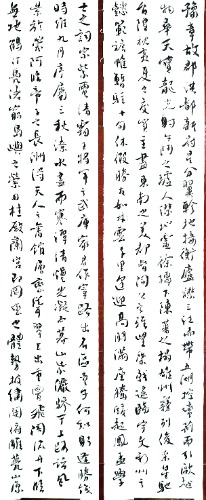 豫章故郡洪都新府星分翼軫地接衡廬襟三江而帶五湖控蠻荊而引甌越
物華天寶龍光射牛斗之墟人傑地靈徐孺下陳蕃之榻雄州霧列俊采星馳
台隍枕夷夏之交賓主盡東南之美都督閻公之雅望棨戟遙臨宇文新州之
懿範襜帷暫駐十旬休暇勝友如雲千里逢迎高朋滿座騰蛟起鳳孟學
士之詞宗紫電清霜王將軍之武庫家君作宰路出名區童子何知躬逢勝餞
時維九月序屬三秋潦水盡而寒潭清煙光凝而暮山紫儼驂騑於上路訪風
景於崇阿臨帝子之長洲得天人之舊館層巒聳翠上出重霄飛閣流丹下臨
無地鶴汀鳧渚窮島嶼之縈回桂殿蘭宮即岡巒之體勢披繡闥俯雕甍山原